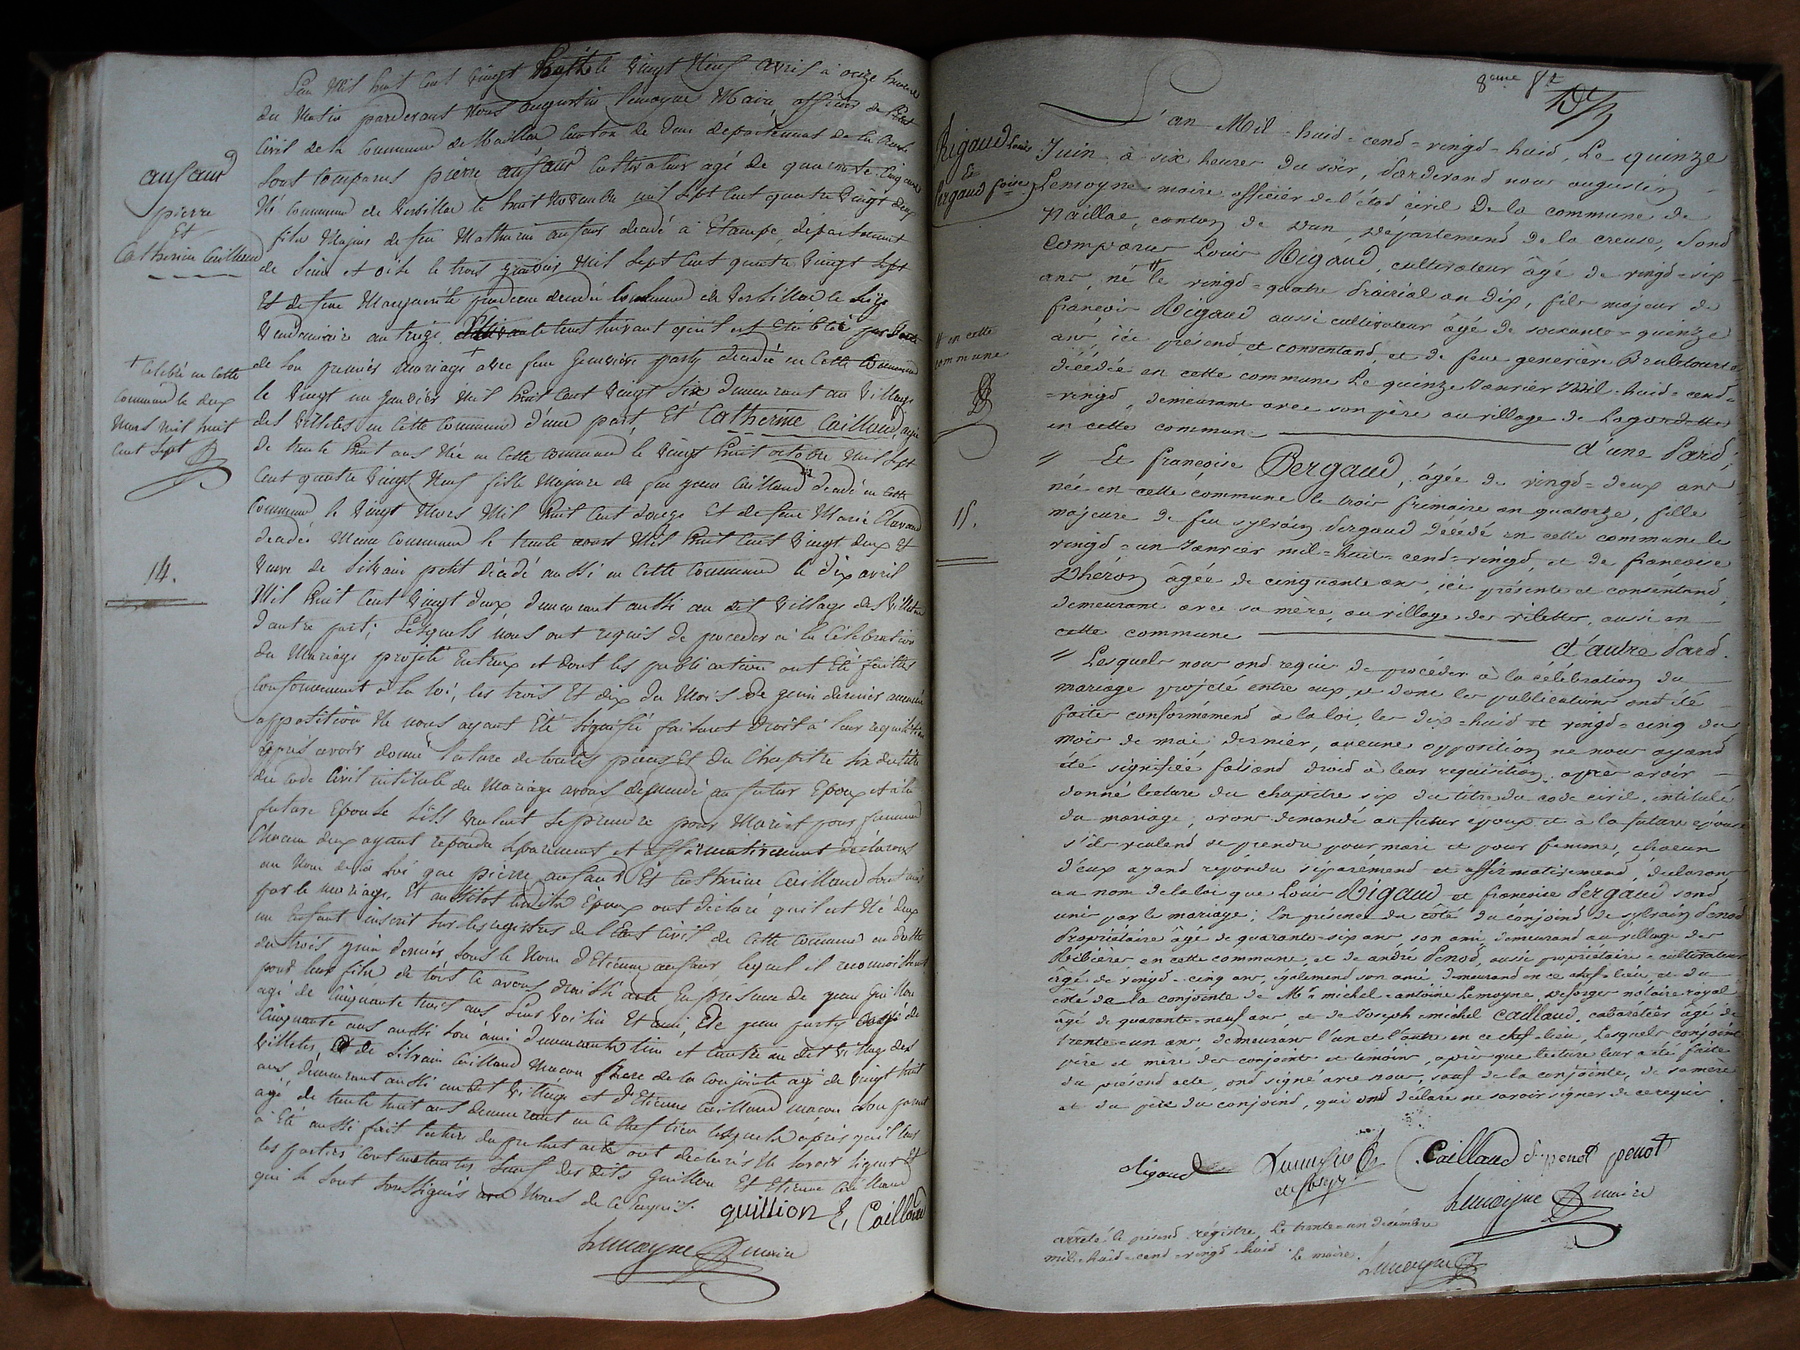 L'an Mil huit Cent Vingt huit le Vingt Neuf avril à onze heures
du Matin pardevant Nous augustin Lemoyne Maire officier de l'état
Civil de la Commune de Naillac Canton de Dun departement de la Creuse
Sont Comparus pierre aufaur Cultivateur agé de quarante Cinq ans
Né Commune de le huit Novembre mil Sept Cent quatre Vingt deux
fils Majeur de feu Mathurin aufaur decédé à Etampe, departement
de Seine et oise le trois Mil Sept Cent quatre Vingt Sept
Et de feue Marguerite decedée Commune de le Seize
Vendemiaire an treize, qu'il est
de Son premier mariage avec feue Genevieve party decedée en Cette Commune
le Vingt un Janvier Mil huit Cent Vingt Six demeurant au Village
des Villetes en Cette Commune d'une part, Et Catherine Caillaud, agée
de trente huit ans Née en Cette Commune le Vingt huit octobre Mil Sept
Cent quatre Vingt Neuf fille Majeure de feu Caillaud decedé en Cette
Commune le Vingt Mars Mil huit Cent douze Et de feue Marie
decedée Meme Commune le trente Mil huit Cent Vingt deux Et
Veuve de Silvain petit décédé aussi en Cette Commune le dix avril
Mil huit Cent Vingt deux, demeurant aussi au dit Village des Villetes
d'autre part; Lesquels nous ont requis de proceder à la Célébration
du Mariage projeté Entreux et dont les publications ont Eté faittes
Conformement à la loi, les trois Et dix du Mois de dernier aucune
opposition Ne nous ayant Eté Signifiée faisant droit à leur requisition
après avoir donné lecture de toutes pieces Et du Chapitre Six du titre
du Code Civil intitulé du Mariage avons demandé au futur Epoux et à la
future Epouse S'ils Veulent Se prendre pour Mari et pour femme
Chacun deux ayant repondu Separement et affirmativement déclarons
au Nom de la Loi que pierre aufaur Et Catherine Caillaud Sont unis
par le mariage, Et aussitot lesdits Epoux ont déclaré qu'il est Né deux
un Enfant inscrit Sur les registres de l'Etat Civil de Cette Commune en datte
du trois dernier Sous le Nom d'Etienne aufaur lequel il reconnoissent
pour leur fils de tout Ce avons dressé acte En présence de jean Guillon
agé de Cinquante trois ans Leur Voisin Et ami, De jean party agé de
Cinquante ans aussi Son ami demeurants L'un et Lautre au dit Village des
Villetes, de Silvain Caillaud Macon frere de la Conjointe agé de Vingt huit
ans, demeurant aussi au dit Village et d'Etienne Caillaud macon Son parent
agé de trente huit ans demeurant en Ce Chef Lieu lesquels après qu'il leur
à Eté aussi fait lecture du présent acte ont declarés Ne Savoir Signer
les parties Contractantes Sauf des dits Guillon Et Etienne Caillaud
qui Se Sont Soussignés avec Nous de Ce Enquis.
guillion E, Caillaud
Lemoyne maire
aufaur
pierre
Et
Catherine Caillaud
+ Célébré en Cette
Commune le deux
Mars Mil huit
Cent Sept
14.
8eme &
L'an Mil = huid = cend = vingd = huid, Le quinze
Juin, à six heures du soir, Pardevand nous augustin
Lemoyne = maire officier de l'état civil De la commune de
Naillac, canton de Dun, Département de la creuse, Sond
comparus Louis Rigaud, cultivateur âgé de vingd = six
ans, né # le vingd = quatre Prairial an dix, fils majeur de
françois Rigaud aussi cultivateur âgé de soixante = quenze
ans, ici présend et consentand, et de feue genevieve
décédée en cette commune Le quinze Janvier Mil = huid = cend =
= vingd, demeurant avec son père au village de Lagardette
en cette commune d'une Pard,
// Et françoise Pergaud, âgée de vingd = deux ans
née en cette commune le trois frimaire an quatorze, fille
majeure de feu sylvain Pergaud Décédé en cette commune le
vingd = un Janvier mil = huid = cend = vingd, et de françoise
Dhéron âgée de cinquante ans, ici présente et consentand,
demeurant avec sa mère, au village des vilettes, aussi en
cette commune d'autre Pard.
// Lesquels nous ond requis de procéder à la célébration du
mariage projeté entre eux, et dont les publications ond été
faites conformémend à la loi, les dix = huid et vingd = cinq du
mois de mai dernier, aucune opposition ne nous ayand
été signifiée faisand droid à leur requisition, après avoir
donné lecture du chapitre six du titre du code civil, intitulé
du mariage, avons demandé au futur epoux et à la future epouse
s'ils veulend se prendre pour mari et pour femme, chacun
d'eux ayand répondu séparémend et affirmativemend, déclarons
au nom de la loi que Louis Rigaud et françoise Pergaud sond
unis par le mariage; En présence du côté du conjoind de sylvain Penod
Propriétaire âgé de quarante = six ans, son ami demeurand au village des
Ribières en cette commune, et de andré Penod, aussi propriétaire = cultivateur
âgé de vingd = cinq ans, égalemend son ami demeurand en ce chef = lieu, et du
côté de la conjointe de Mr michel = antoine Lemoyne, Desforges notaire royal
âgé de quarante = neuf ans, et de Joseph = michel Caillaud, cabaretier âgé de
trente = un ans, demeurans l'un et l'autre en ce chef = lieu, Lesquels conjoints
père et mère des conjoints et temoins, après que lecture leur a été faite
du présend acte, ond signé avec nous, sauf de la conjointe, de sa mère
et du père du conjoind, qui ond déclaré ne savoir signer de ce requis.
Rigaud Lemoyne Caillaud penot penot
desforges
Lemoyne maire
arrêté le présend régistre, Le trente = un décembre
mil = huid = cend = vingd = huid. Le maire.
Lemoyne
Rigaud Louis
&
Pergaud foise
# en cette
commune
15.